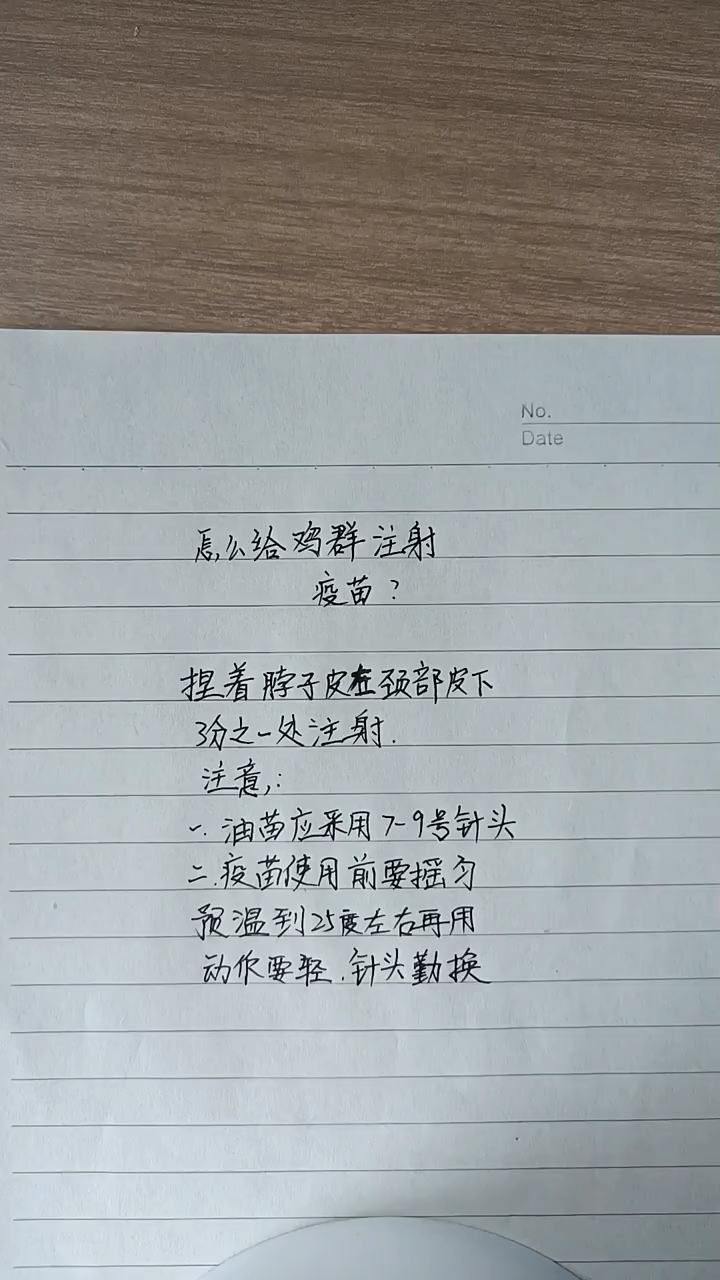 No.
Date
怎么给鸡群注射
疫苗?
捏着脖子皮在颈部皮下
3分之一处注射.
注意,:
一. 油苗应采用7-9号针头
二.疫苗使用前要摇匀
预温到25度左右再用
动作要轻.针头勤换